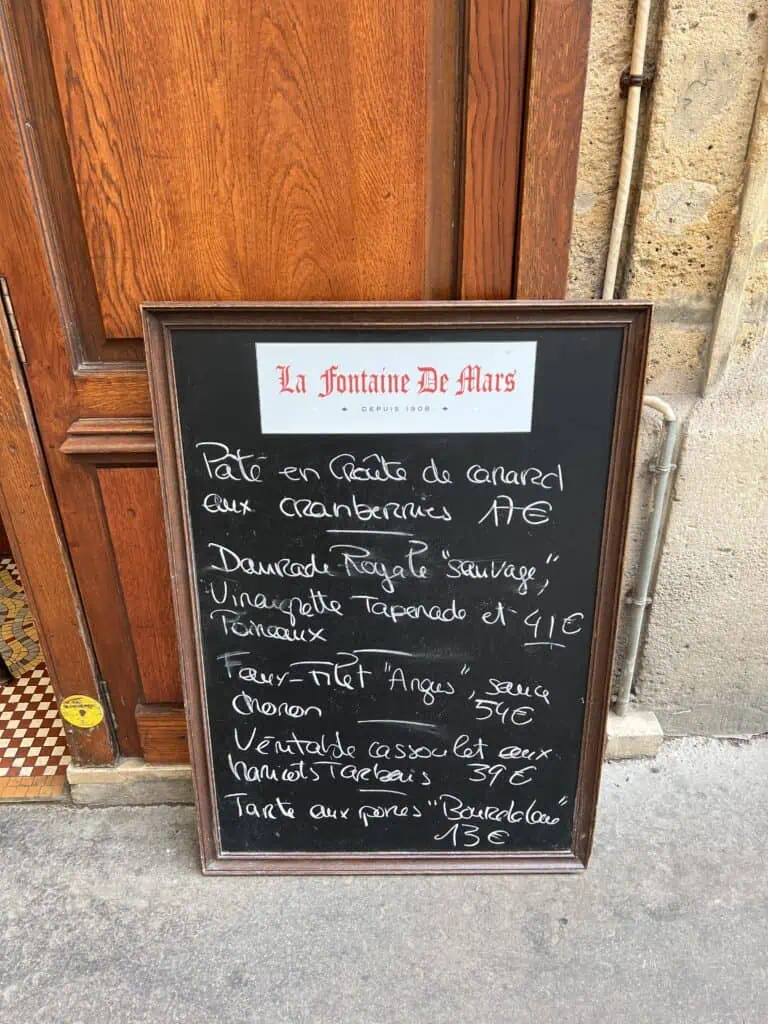 La Fontaine De Mars
DEPUIS 1908
Pâté en Croûte de canard
aux cranberries 17€
Daurade Royale "sauvage",
Vinaigrette Tapenade et 41€
Poireaux
Faux-Filet "Angus", sauce
Choron 54€
Véritable cassoulet aux
haricots Tarbais 39€
Tarte aux poires "Bourdalou"
13€